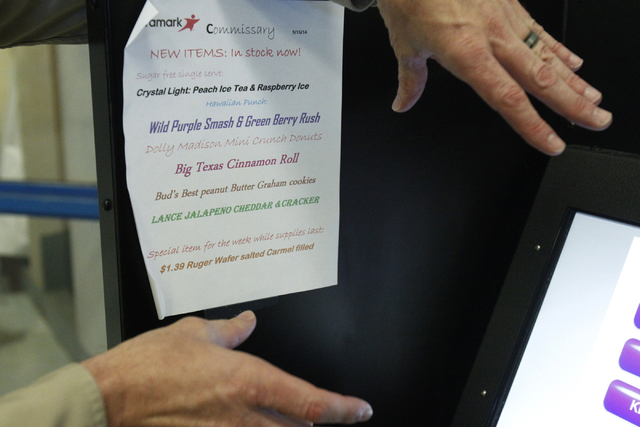 amark Commissary 5/15/14
NEW ITEMS: In stock now!
Sugar free single serve:
Crystal Light: Peach Ice Tea & Raspberry Ice
Hawaiian Punch:
Wild Purple Smash & Green Berry Rush
Dolly Madison Mini Crunch Donuts
Big Texas Cinnamon Roll
Bud's Best peanut Butter Graham cookies
LANCE JALAPENO CHEDDAR &CRACKER
Special item for the week while supplies last:
$1.39 Ruger Wafer salted Carmel filled